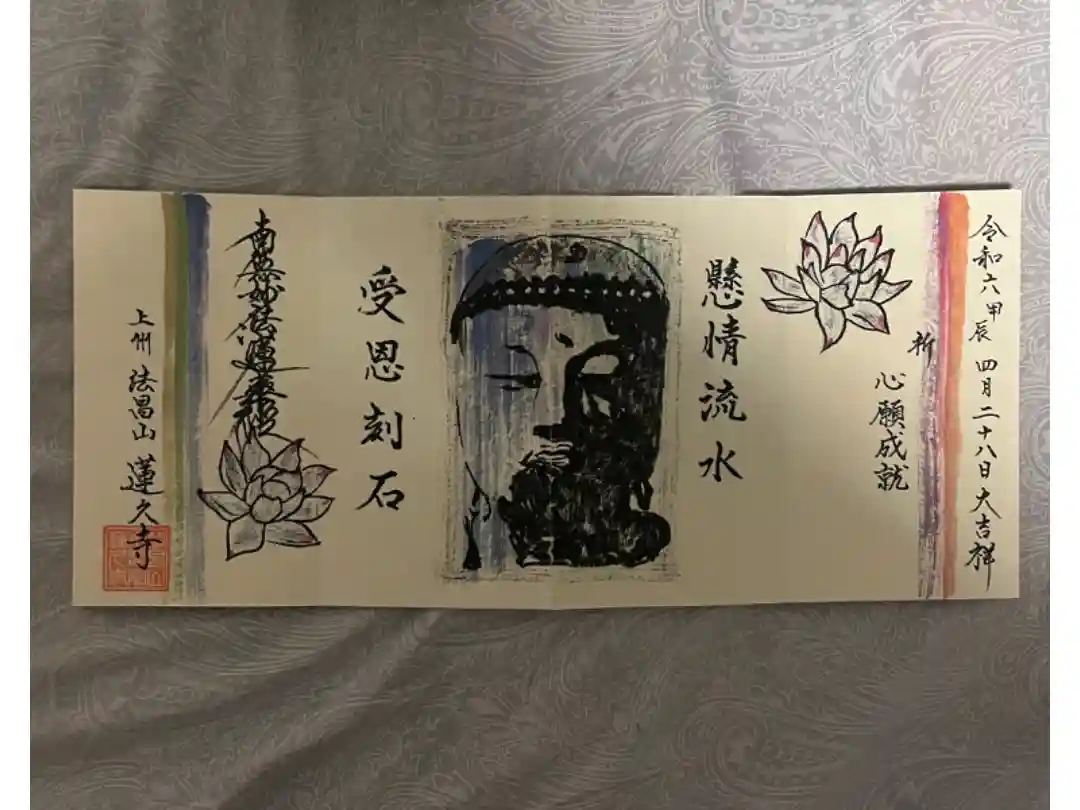 令和六甲辰四月二十八日大吉祥
祈
心願成就
懸情流水
受恩刻石
南無妙法蓮華経
上州 法昌山 蓮久寺